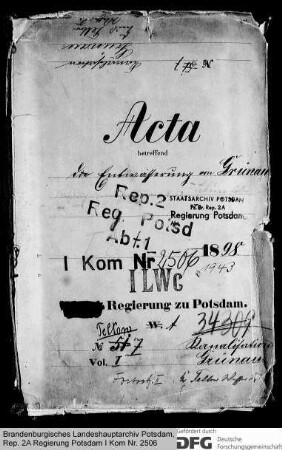 Acta
betreffend
die Entwässerung von Grünau
Rep. 2
STAATSARCHIV POTSDAM
Pr. Br. Rep. 2A
Regierung Potsdam
Reg. Potsd
Abt. 1
1898
I Kom Nr. 2506
1943
ILWC
Regierung zu Potsdam.
Teltow W. 1
34306
№ 57
Kanalisation
Grünau
Vol. I
Brandenburgisches Landeshauptarchiv Potsdam,
Rep. 2A Regierung Potsdam I Kom Nr. 2506
Gefördert durch
DFG Deutsche
Forschungsgemeinschaft